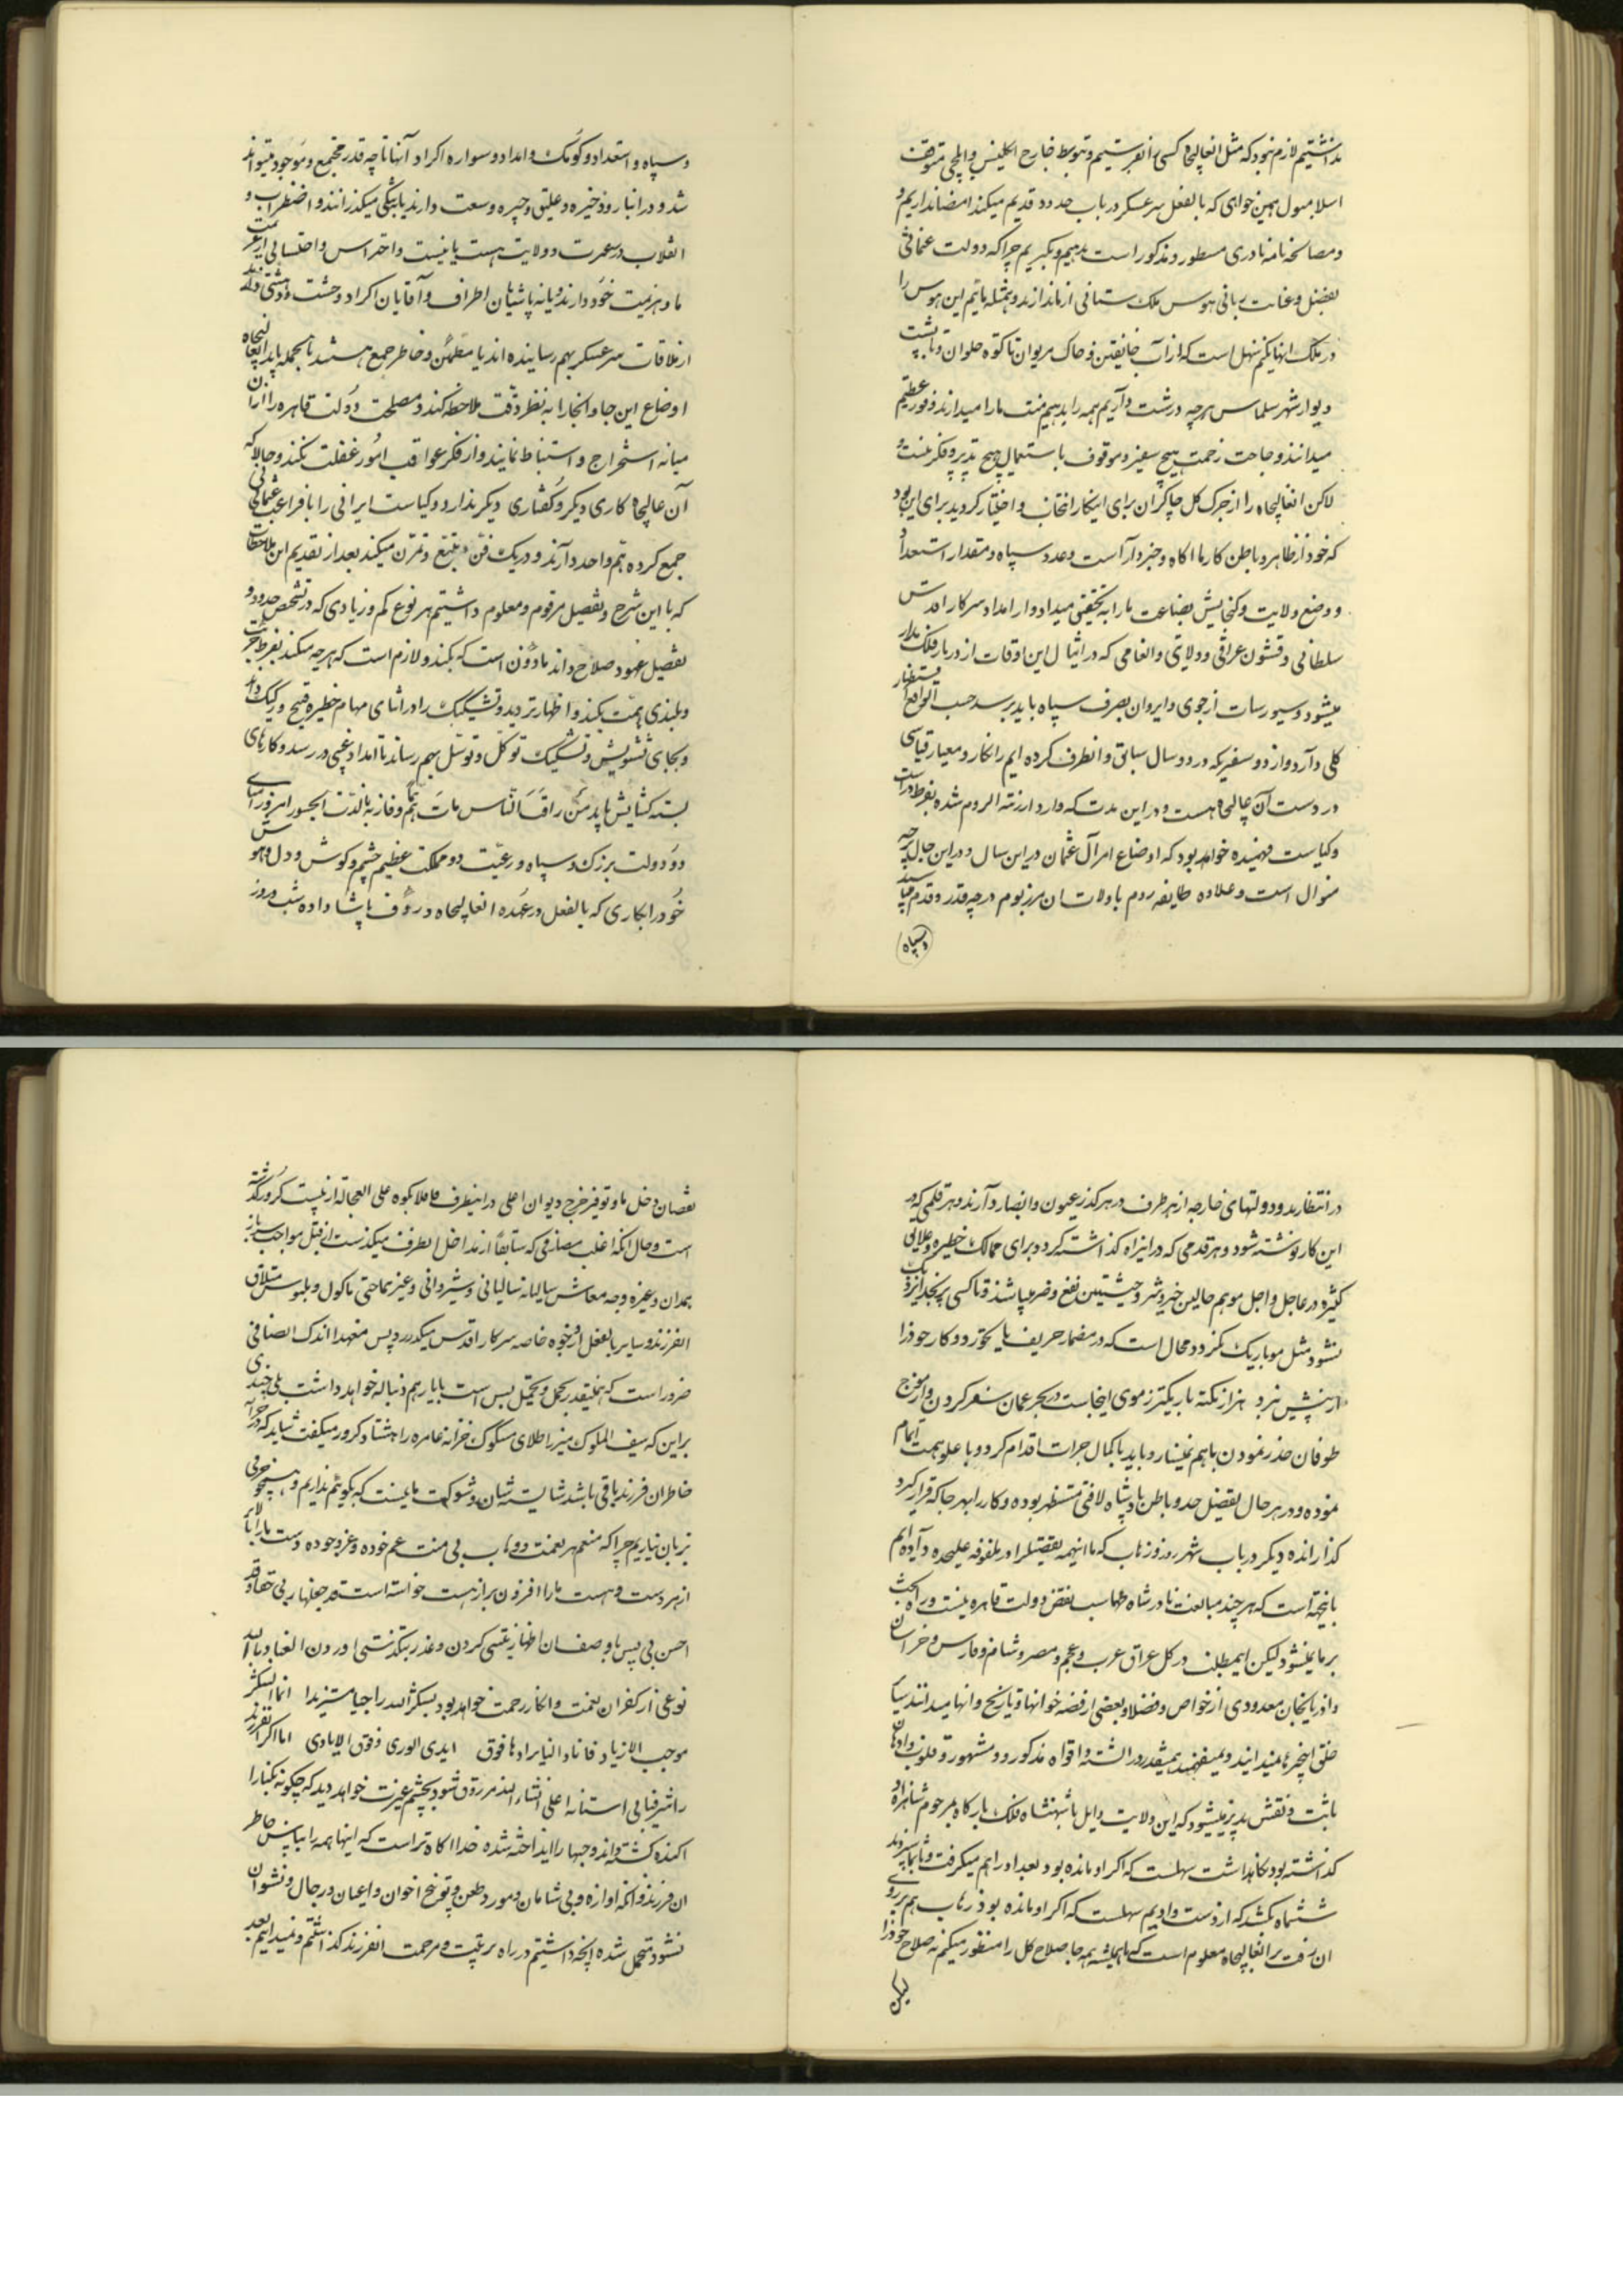 نداشتیم لازم نبود که مثل انعالیجاه کسی را نفرستیم و بتوسط خارج انگلیس و ایلچی متوقف
اسلامبول همین خواهی که بالفعل سرعسکر در باب حدود قدیم میکند امضا نداریم و
و مصالحه نامه نادری مسطور و مذکور است بدهیم و بگیریم چرا که دولت عثمانی
بفضل و عنایت ربانی هوس ملک ستانی از ما ندارند و همیشه مایم این هوس را
در ملک انها بکنیم سهل است که از آب خانقین و خاک مریوان تا کوه حلوان و تا پشت
دیوار شهر سلماس هرچه درشت داریم همه را بدهیم منت ما را میدارند و فوز عظیم
میدانند و حاجت زحمت هیچ سفیر و موقوف باستعمال هیچ تدبیر و فکر نیست و
لاکن انعالیجاه را از جرک کل چاکران برای اینکار انتخاب و اختیار کردید برای این بود
که خود از ظاهر و باطن کار ما اکاه و خبردار است و عدد سپاه و مقدار استعداد
و وضع ولایت و کنجایش بضاعت ما را به تحقیق میداد و از امداد سرکار اقدس
سلطانی و قشون عراقی و ولایتی و انعامی که در امثال این اوقات از دربار فلک مدار
میشود و سیورسات از خوی و ایروان بصرف سپاه باید برسد حسب الواقع استحضار
کلی دارد و از دو سفر که در دو سال سابق و انطرف کرده ایم رانکار و معیار قیاسی
در دست آن عالیجاه هست و در این مدت که وارد ارزنة الروم شده بفرط فراست
و کیاست فهمیده خواهد بود که اوضاع امر آل عثمان در این سال و در این حال بر چه
منوال است و علاوه طایفه روم با ولات ان مرز بوم در چه قدر و قدم میباشند
و سپاه
و سپاه و استعداد و کومک و امداد و سواره اکراد آنها تا چه قدر مجتمع و موجود میتواند
شد و در انبار و ذخیره و علیق و جیره وسعت دارند یا بتنگی میکذرانند و اضطراب و
انقلاب در عمرت و ولایت هست یا نیست و احتراس و احتسابی از عزیمت
ما و هزیمت خود دارند یا نه پاشایان اطراف و آقایان اکراد وحشت و دهشتی
از ملاقات سرعسکر بهم رسانیده اند یا مطمئن و خاطر جمع هستند بالجمله باید انعالیجاه
اوضاع این جا و انجا را به نظر دقت ملاحظه کند و مصلحت دولت قاهره را از آن
میانه استخراج و استنباط نمایند و از فکر عواقب امور غفلت نکند و حالا که
آن عالیجاه کاری دیکر و کفتاری دیکر ندارد و کیاست ایرانی را با فراغت عثمانی
جمع کرده هم واحد دارند و در یک فن تتبع و تمرن میکند بعد از تقدیم این ملاحظات
که با این شرح و تفصیل مرقوم و معلوم داشتیم هر نوع کم و زیادی که در تشخیص حدود و
تفصیل عهود صلاح داند ماذون است که بکند و لازم است که هرچه میکند بفرط جرئت
و بلندی همت بکند و اظهار تردید و تشکیک را در اثنای مهام خطیره قبیح و رکیک داند
و بجای تشویش و تشکیک توکل و توسل بهم رساند تا امداد غیبی در رسد و کارهای
بسته کشایش یابد من راقب الناس مات هما و فاز باللذة الجسور امروز امنای
دو دولت بزرک و سپاه و رعیت دو مملکت عظیم چشم و کوش و دل و هوش
خود را بکاری که بالفعل در عهده انعالیجاه و رؤف پاشا داده شب و روز
در انتظارند و دولتهای خارجه از هر طرف در هر کذر عیون و ابصار دارند و هر قلمی که در
این کار نوشته شود و هر قدمی که در این راه کذاشته کردد برای ممالک خطیره و خلایق
کثیره در عاجل و اجل موهم حالین خیر و شر و حیثیتین نفع و ضر میباشد و تا کسی
نشود مثل مو باریک نکردد محال است که در مضمار حریف پا بکذارد و کار خود را
از پیش نبرد هزار نکته باریکتر ز موی اینجاست در بحر عمان سفر کردن و از موج
طوفان حذر نمودن باهم نمیسازد باید با کمال جرات اقدام کرد و با علو همت اتمام
نموده و در هر حال بفضل خدا و باطن پادشاه لافتی مستظهر بوده و کار را بهر جا که قرار کیرد
کذارانده دیکر در باب شهر زور و زهاب که ما اینهمه تفصیلرا در ملفوفه علیحده داده ایم
بانجهة است که هر چند مبالغت نادرشاه طهماسب نقض دولت قاهره نیست و راه بحث
بر ما نمیشود لیکن اینمطلب در کل عراق عرب و عجم و مصر و شام و فارس و خراسان
و اذربایجان معدودی از خواص و فضلا و بعضی از قصه خوانها و تاریخ دانها میدانند سایر
خلق اینخبر ها نمیدانند و نمیفهمند همینقدر در السنه و افواه مذکور و مشهور و قلوب و اذهان
ثابت و نقش پذیر میشود که این ولایت را بل شهنشاه فلک بارکاه بمرحوم شاهزاده
کذاشته بود نکاهداشت سهلست که اکر او مانده بود بغداد را هم میکرفت و تا
ششماه نکشید که از دست دادیم سهلست که اکر او مانده بود زهاب هم بر روی
ان رفت بر انعالیجاه معلوم است که ما همیشه همه جا صلاح کل را منظور میکنیم نه صلاح خود را
لیکن
نقصان دخل ما و توفیر خرج دیوان اعلی در اینطرف قافلانکوه علی العجاله از بیست کرور کذشته
است و حال انکه اغلب مصارفی که سابقا از مداخل انطرف میکذشت از قبیل مواجب سرباز
همدان و غیره وجه معاش سالیانه سالیانی و شیروانی و غیرهما حتی ماکول و ملبوس متعلق
انفرزند و سایر بالفعل از وجوه خاصه سرکار اقدس میکذرد پس منبعد اندک انصافی
ضرور است که همینقدر تحمل و تحمیل بس است یا باز هم دنباله خواهد داشت بلی چندی
بر این که سیف الملوک میرزا طلای مسکوک خزانه عامره را هشتاد کرور میکفت شاید که در
خاطر ان فرزند باقی باشد شایسته شان و شوکت ما نیست که بکوئیم نداریم و هیچ حرفی
بزبان نیاریم چرا که منعم هر نعمت و وهاب بی منت عم خوده و عز وجوده دست ما را بالاتر
از هر دست و هست ما را افزون بر از هست خواسته است
احسن بی پس با وصف ان اظهار تنسی کردن و عذر تنکدستی اوردن العیاذ بالله
نوعی از کفران نعمت و انکار رحمت خواهد بود بسکر الله راجیا مستزیدا انما الشکر
موجب الازدیاد فاناد النا یرادها فوق ایدی الوری و فوق الایادی اما اکر انفرزند
را شرفیابی استانه اعلی انشاء الله مرزوق شود بچشم عبرت خواهد دید که چکونه کنجها را
اکنده کشته اند و جبها را انداخته شده خدا اکاه تر است که اینها همه را بپاس خاطر
ان فرزند و انکه اوازه و بی شامان و مورد طعن و توبیخ اخوان و اعیان و رجال و نسوان
نشود متحمل شده انچه داشتیم در راه تربیت و مرحمت انفرزند کذاشتیم و نمیدانیم بعد